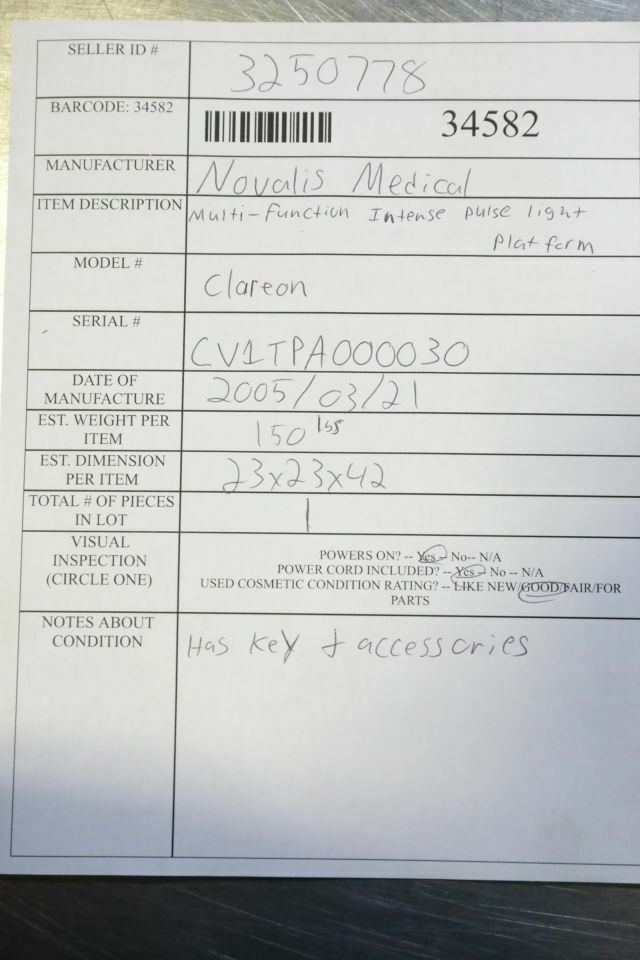 SELLER ID # 3250778
BARCODE: 34582 34582
MANUFACTURER Novalis Medical
ITEM DESCRIPTION Multi-Function Intense pulse light
Platform
MODEL # Clareon
SERIAL # CV1TPA000030
DATE OF
MANUFACTURE 2005/03/21
EST. WEIGHT PER
ITEM 150 lbs
EST. DIMENSION
PER ITEM 23x23x42
TOTAL # OF PIECES
IN LOT 1
VISUAL
INSPECTION
(CIRCLE ONE)
POWERS ON? -- Yes -- No-- N/A
POWER CORD INCLUDED? -- Yes -- No -- N/A
USED COSMETIC CONDITION RATING? -- LIKE NEW/GOOD/FAIR/FOR
PARTS
NOTES ABOUT
CONDITION Has key + accessories